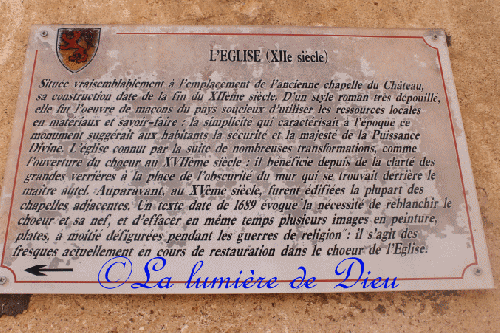 L'EGLISE (XIIe siècle)
Située vraisemblablement à l'emplacement de l'ancienne chapelle du Château,
sa construction date de la fin du XIIème siècle. D'un style roman très dépouillé,
elle fut l'oeuvre de maçons du pays soucieux d'utiliser les ressources locales
en matériaux et savoir-faire ; la simplicité qui caractérisait à l'époque ce
monument suggérait aux habitants la sécurité et la majesté de la Puissance
Divine. L'église connut par la suite de nombreuses transformations, comme
l'ouverture du choeur au XVIIème siècle : il bénéficie depuis de la clarté des
grandes verrières à la place de l'obscurité du mur qui se trouvait derrière le
maître autel. Auparavant, au XVème siècle, furent édifiées la plupart des
chapelles adjacentes. Un texte date de 1689 évoque la nécessité de reblanchir le
choeur et sa nef, et d'effacer en même temps plusieurs images en peinture,
plates, à moitié défigurées pendant les guerres de religion" : il s'agit des
fresques actuellement en cours de restauration dans le choeur de l'Eglise.
©La lumière de Dieu